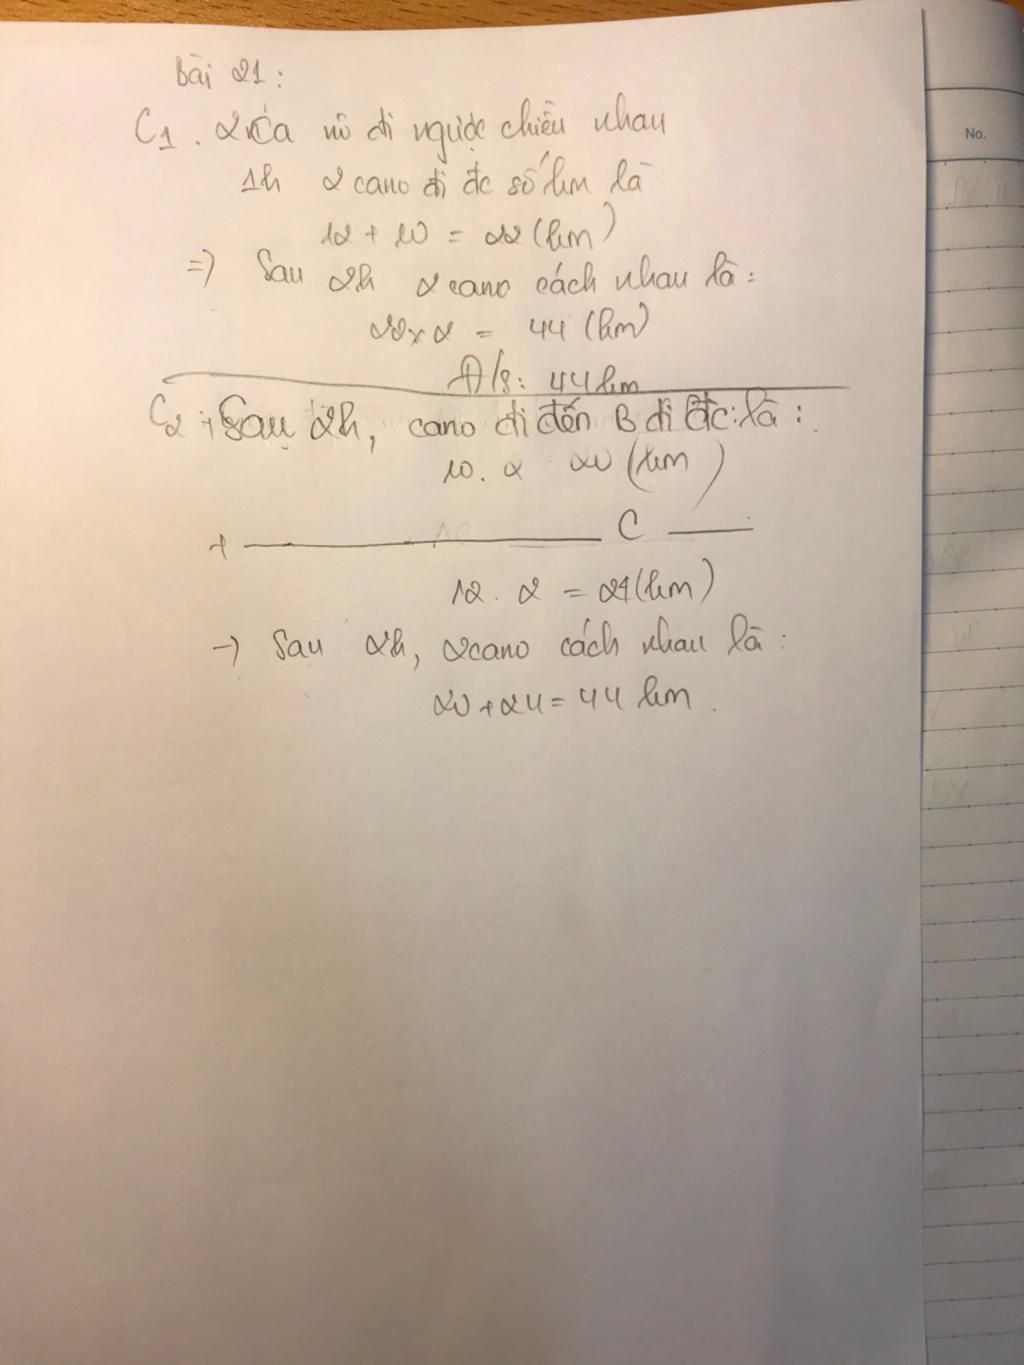 Bài 21:
C1. 2 Ca nô đi ngược chiều nhau
1h 2 cano đi đc số km là
12 + 10 = 22 (km)
=> Sau 2h 2 cano cách nhau là:
22 x 2 = 44 (km)
Đ/s: 44 km
C2: + Sau 2h, cano đi đến B đi đc: là:
10. 2 20 (km)
+ ———— C ——
12. 2 = 24 (km)
-> Sau 2h, 2 cano cách nhau là:
20 + 24 = 44 km.
No.